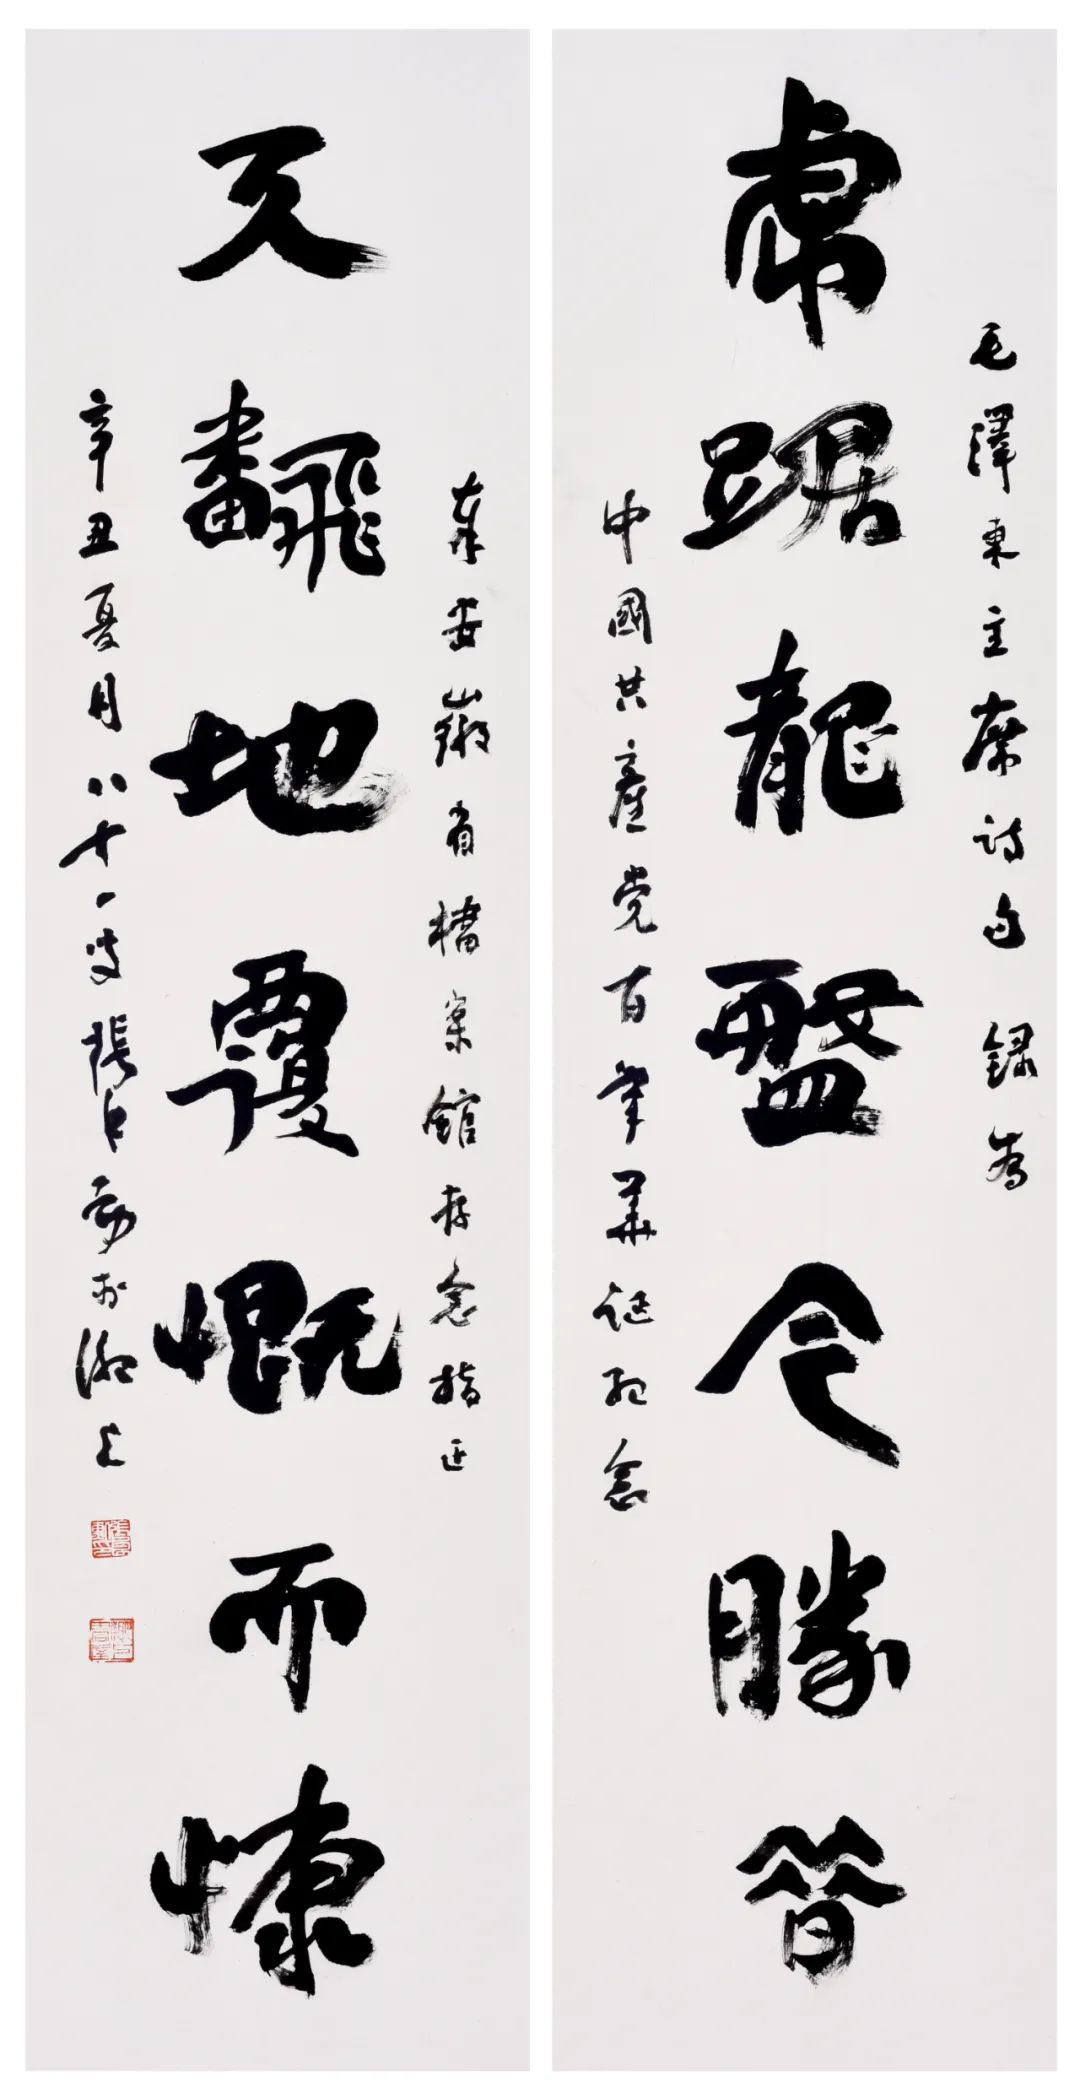 毛澤東主席詩句 錄為
虎踞龍盤今勝昔
中國共產党百年華誕紀念
奉安徽省檔案館存念指正
天飜地覆慨而慷
辛丑夏月八十一叟張良勛於淝上